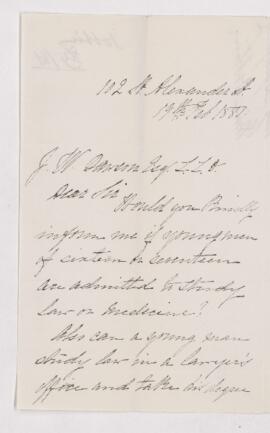 102 St Alexander St
19th Feb 1880
J. W. Dawson Esq. L.L.D.
Dear Sir
Would you kindly
inform me if young men
of sixteen or seventeen
are admitted to study
law or medicine?
Also can a young man
study law in a lawyer's
office and take his degree